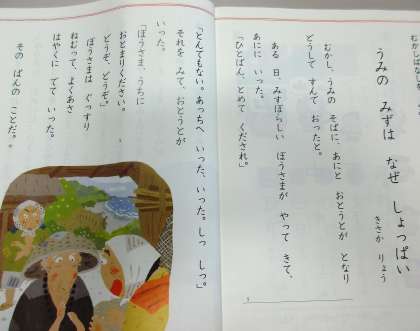 むかしばなしを
うみの みずは なぜ しょっぱい
きさか りょう
むかし、うみの そばに、あにと おとうとが となり
どうしで すんで おったと。
ある 日、みすぼらしい ぼうさまが やって きて、
あにに いった。
「ひとばん、とめて くだされ。」
「とんでもない。あっちへ いった、いった。しっ しっ。」
それを みて、おとうとが
いった。
「ぼうさま、うちに
おとまりください。
どうぞ、どうぞ。」
ぼうさまは ぐっすり
ねむって、よくあさ
はやくに でて いった。
その ばんの ことだ。